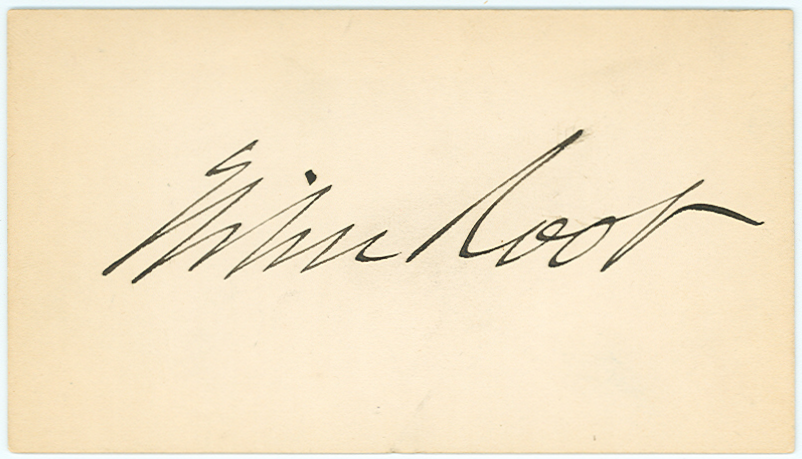 Elihu Root